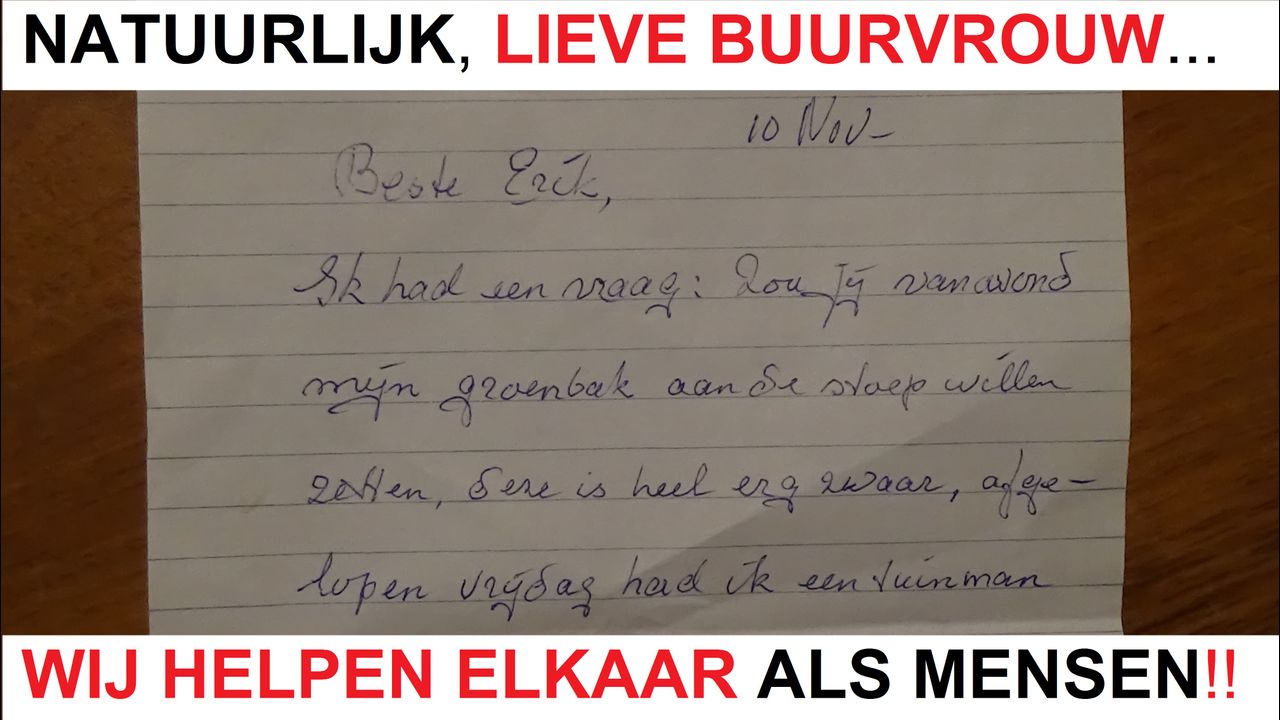 NATUURLIJK, LIEVE BUURVROUW...
10 Nov-
Beste Erik,
Ik had een vraag: Zou jij vanavond
mijn groenbak aan de stoep willen
zetten, deze is heel erg zwaar, afge-
lopen vrijdag had ik een tuinman
WIJ HELPEN ELKAAR ALS MENSEN!!